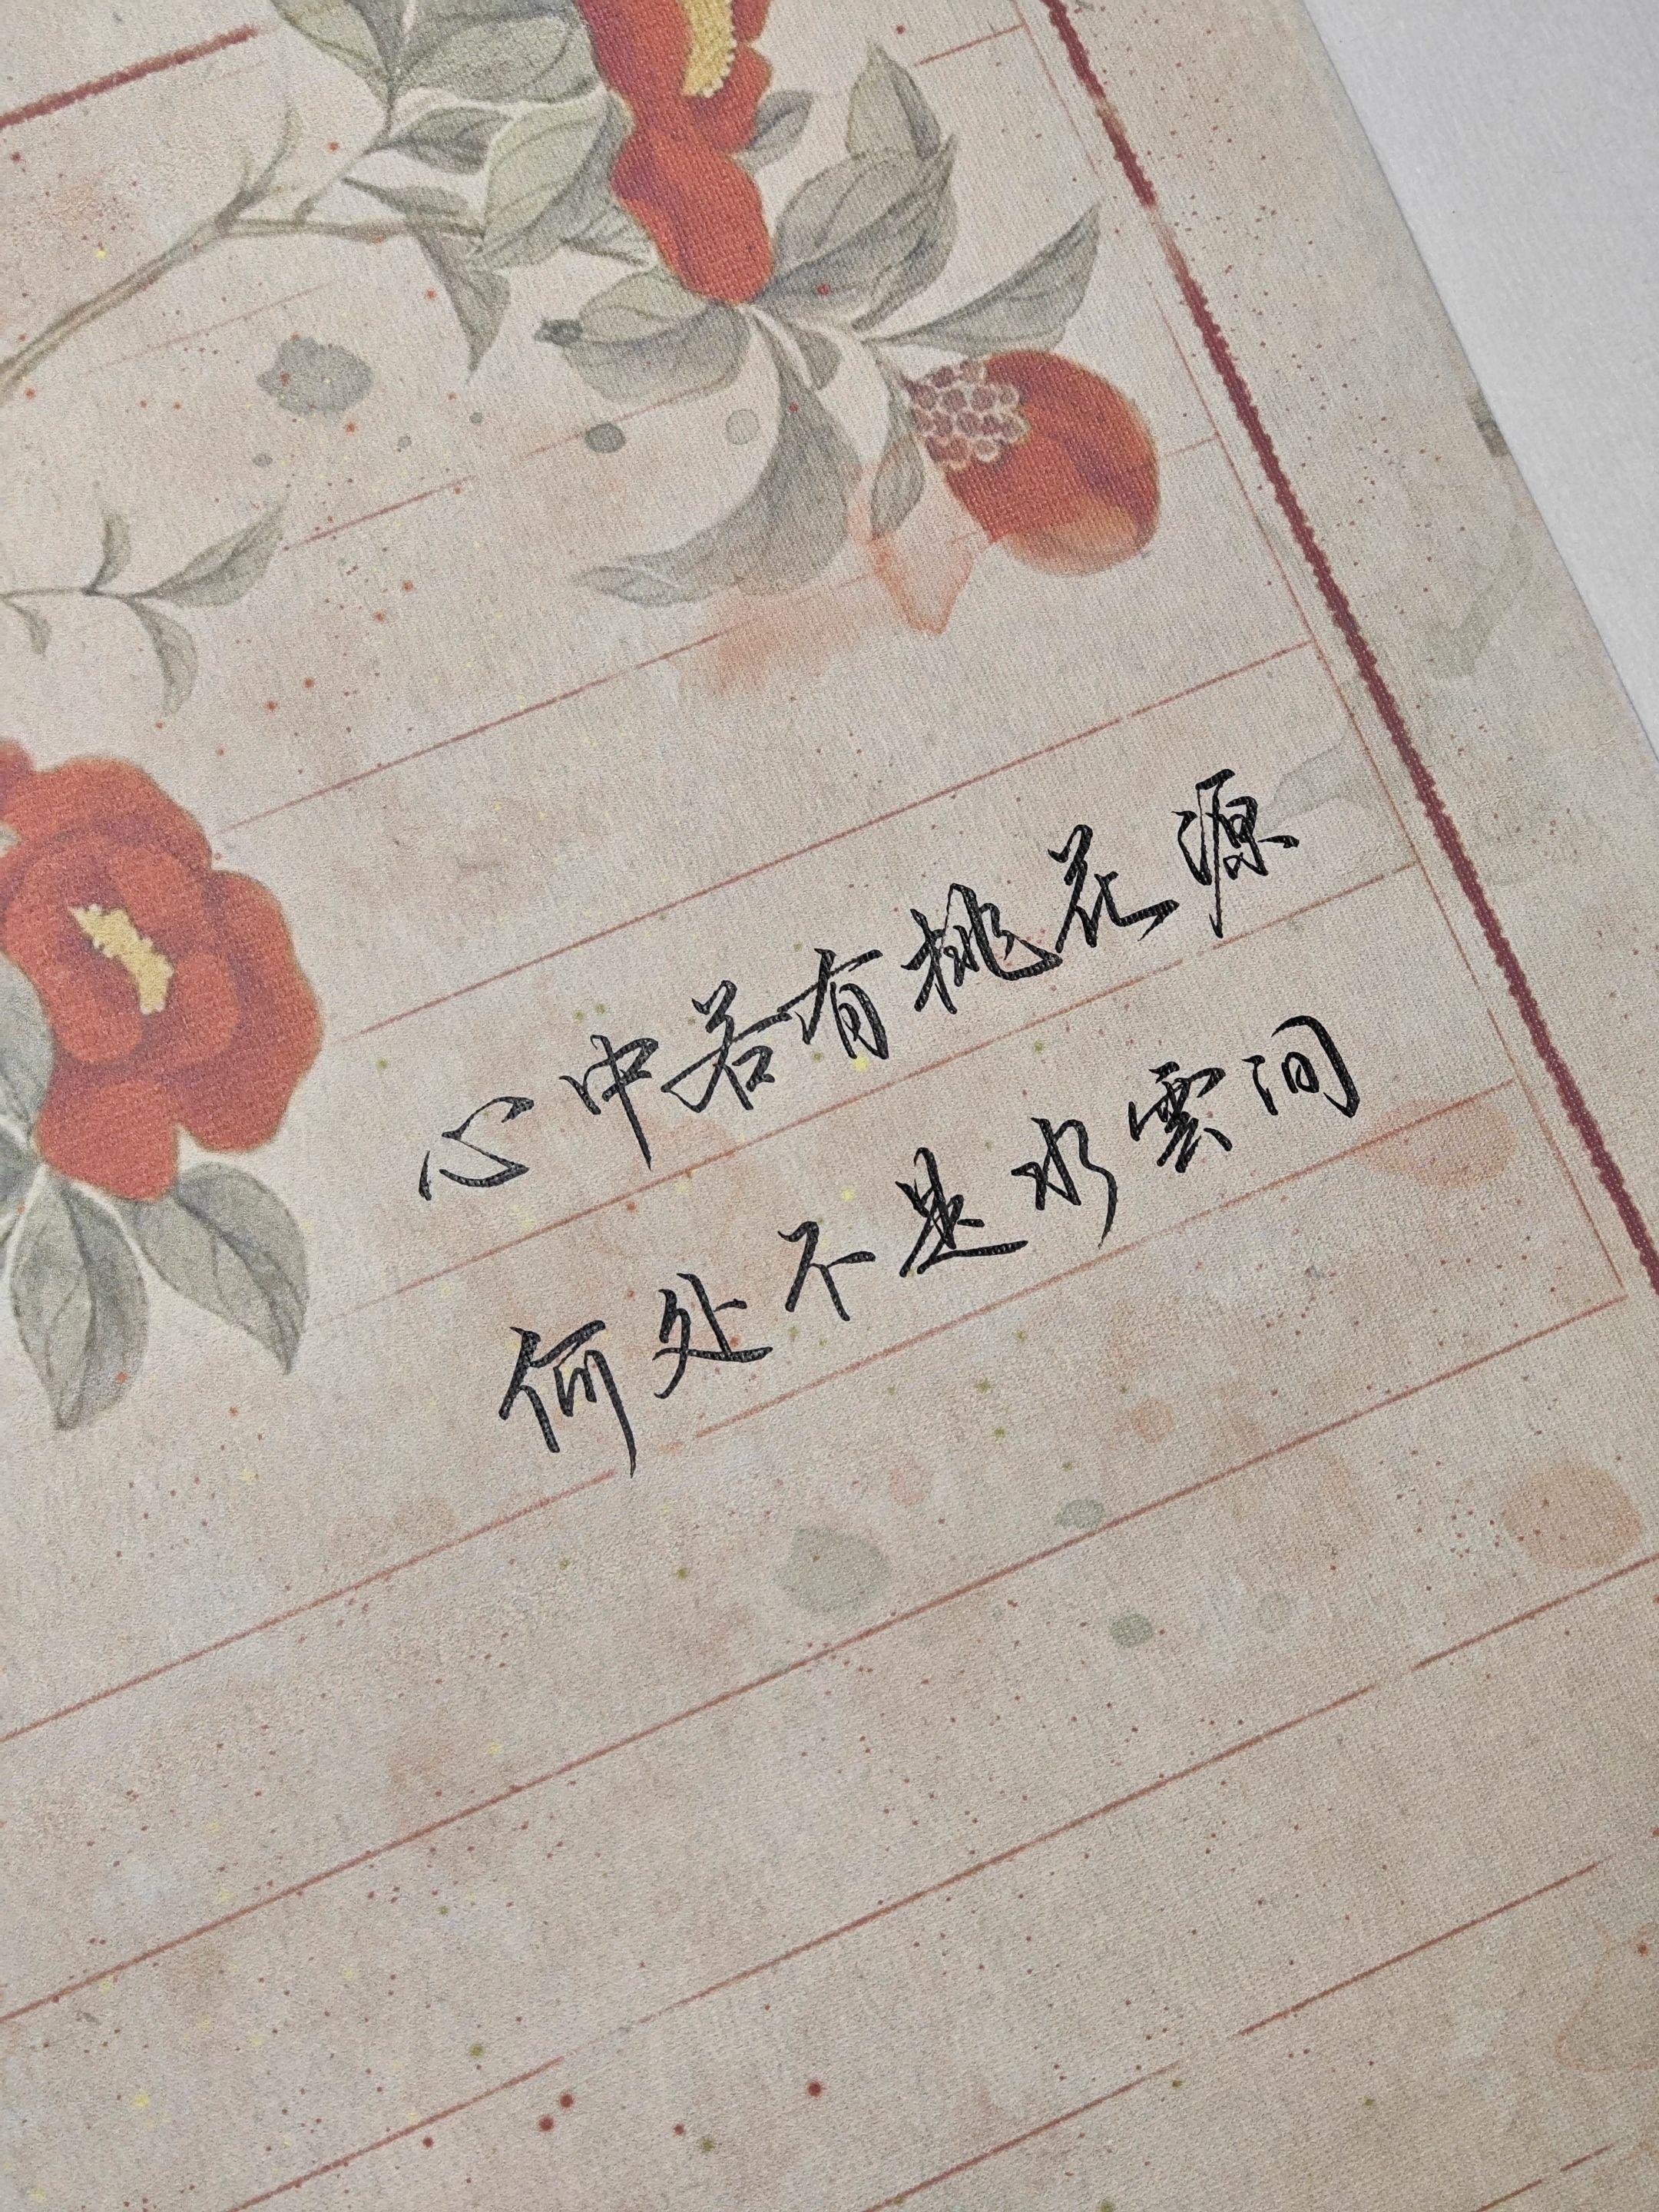 心中若有桃花源
何处不是水雲间